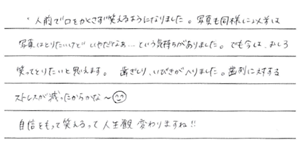 人前で口をかくさず笑えるようになりました。写真も同様に以前は
写真はとりたいけど いやだなぁ…という気持がありました。でも今は、むしろ
笑ってとりたいと思えます。 歯ぎしり、いびきが入りました。歯列に対する
ストレスが減ったからかな〜
自信をもって笑えるって人生観 変わりますね!!